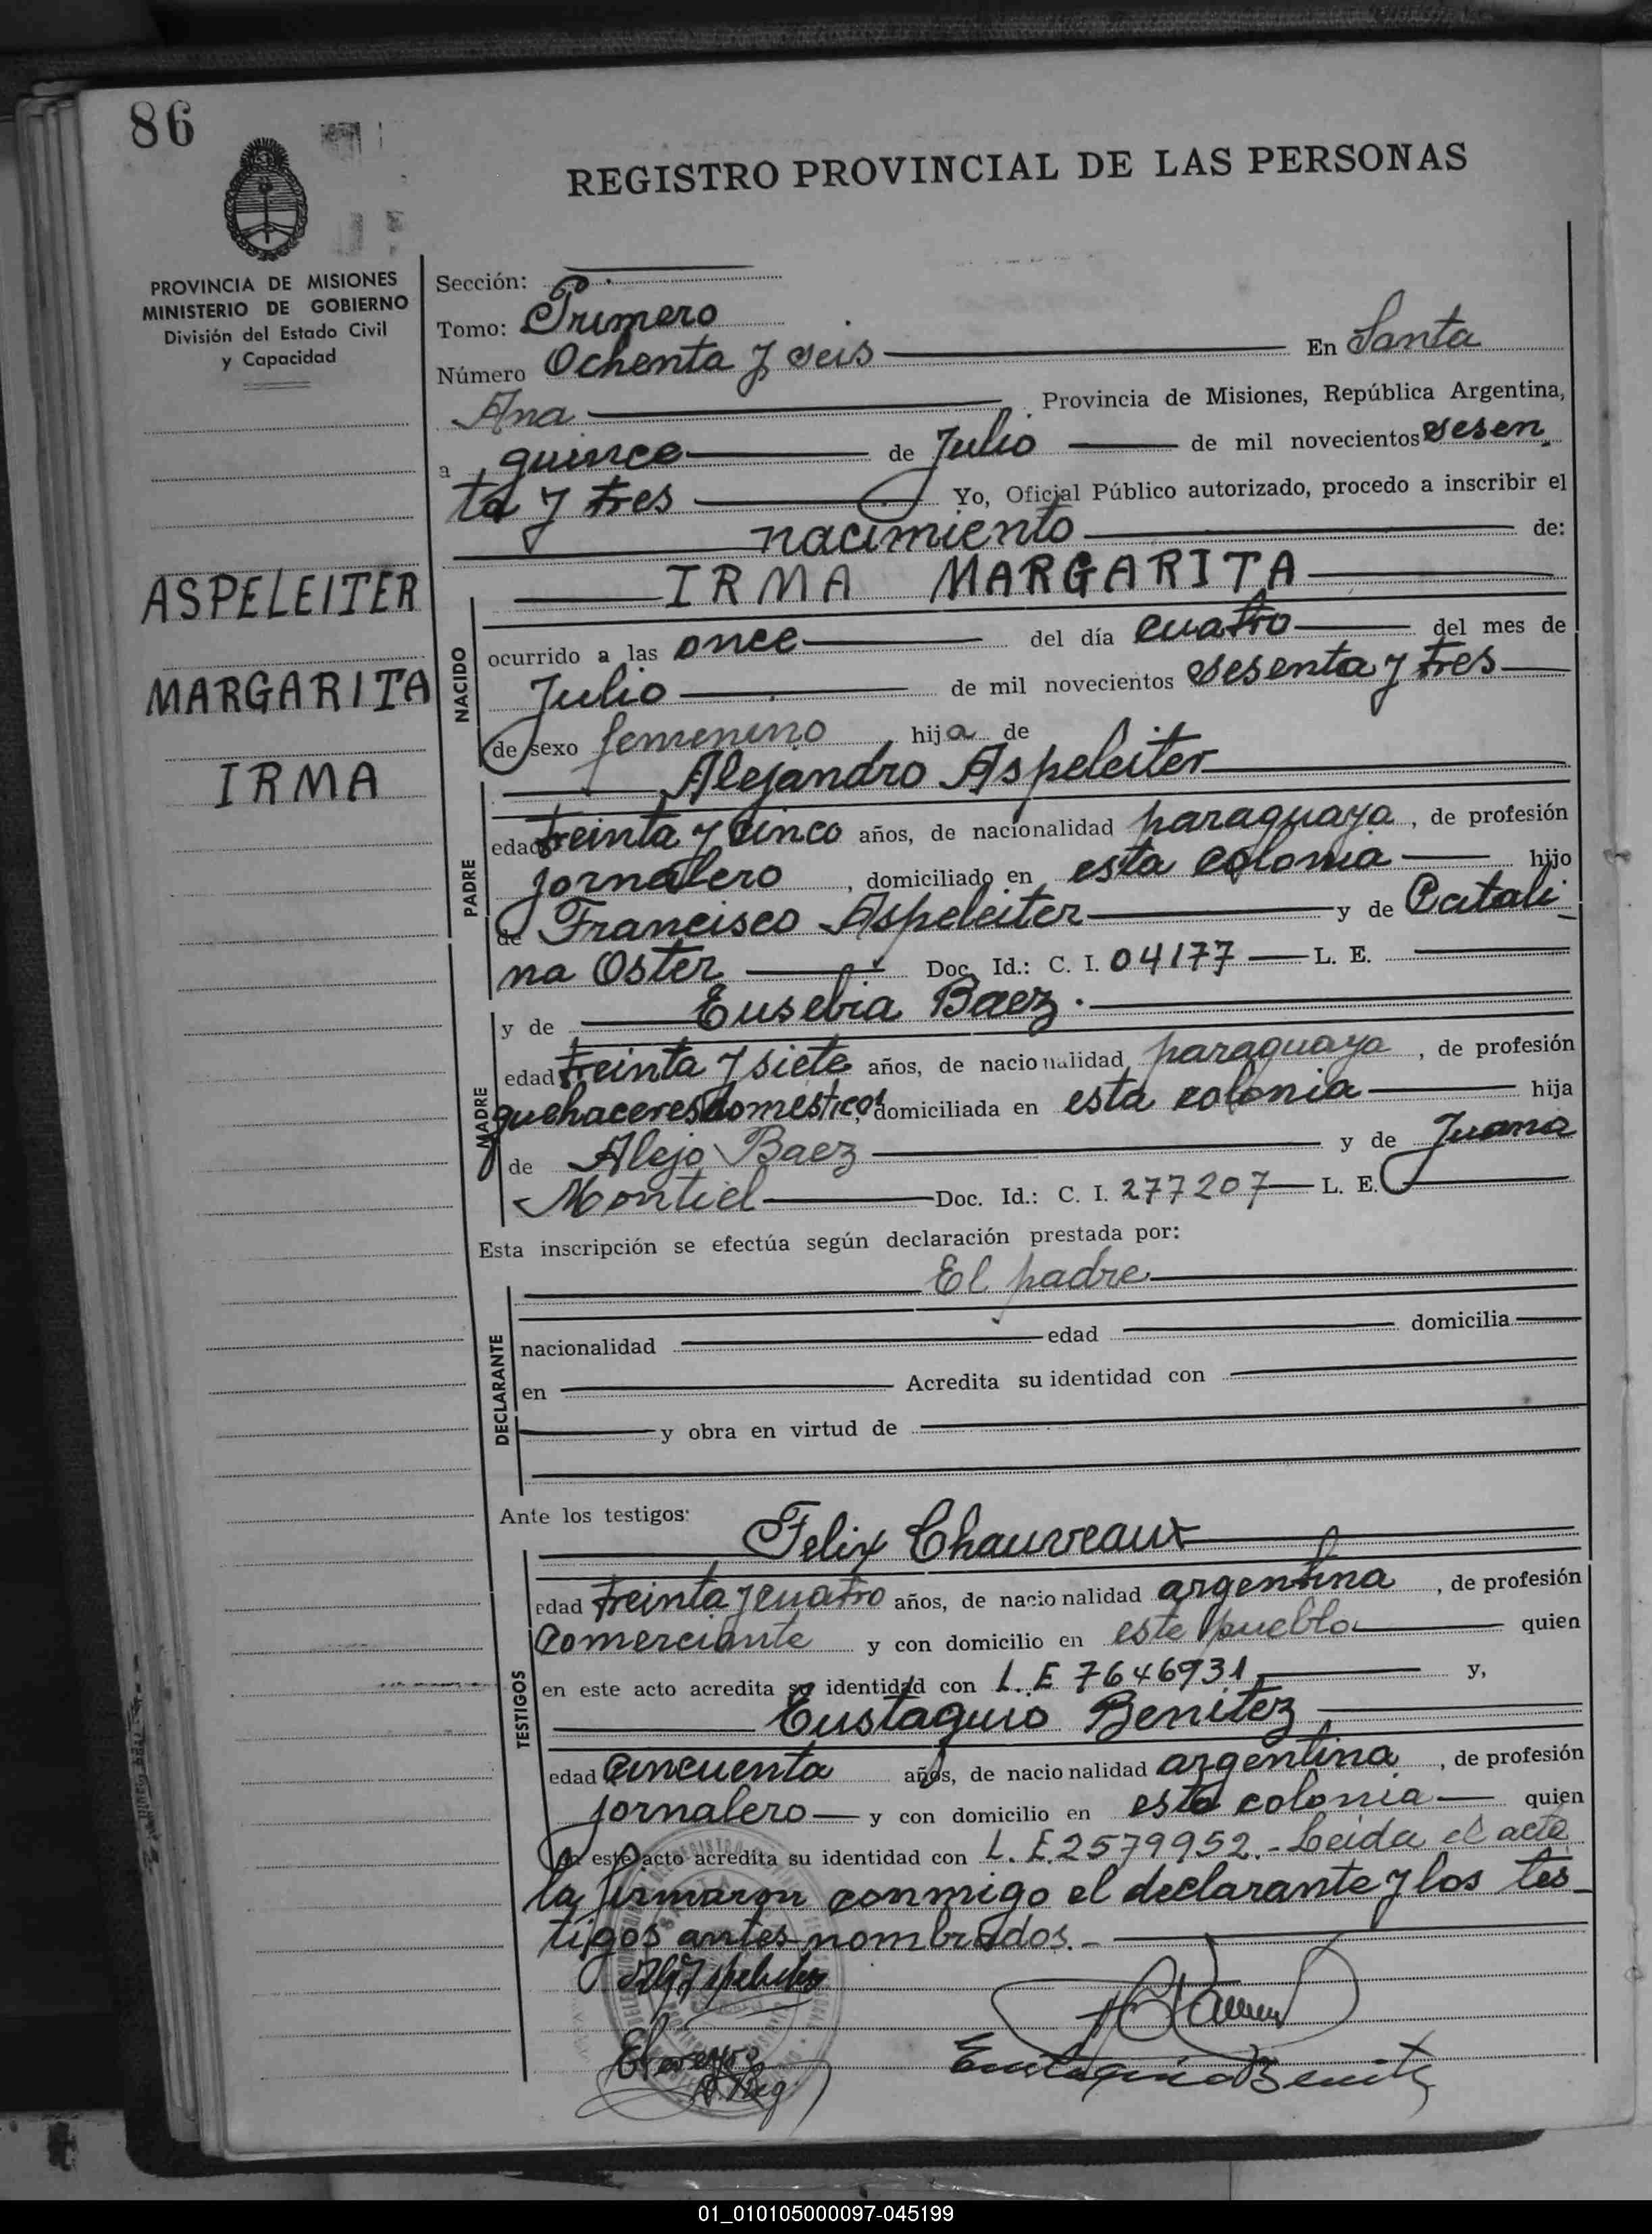 86
REGISTRO PROVINCIAL DE LAS PERSONAS
PROVINCIA DE MISIONES
MINISTERIO DE GOBIERNO
División del Estado Civil
y Capacidad
ASPELEITER
MARGARITA
IRMA
Sección:
Tomo: Primero
Número Ochenta y seis En Santa
Ana Provincia de Misiones, República Argentina,
a quince de Julio de mil novecientos sesen
ta y tres Yo, Oficial Público autorizado, procedo a inscribir el
nacimiento de:
IRMA MARGARITA
NACIDO
ocurrido a las once del día cuatro del mes de
Julio de mil novecientos sesenta y tres
de sexo femenino, hija de
Alejandro Aspeleiter
PADRE
edad treinta y cinco años, de nacionalidad paraguaya, de profesión
jornalero, domiciliado en esta colonia hijo
de Francisco Aspeleiter y de Catali
na Oster Doc. Id.: C. I. 04177 L. E.
y de Eusebia Baez.
MADRE
edad treinta y siete años, de nacionalidad paraguaya, de profesión
quehaceres domésticos, domiciliada en esta colonia hija
de Alejo Baez y de Juana
Montiel Doc. Id.: C. I. 277207 L. E.
Esta inscripción se efectúa según declaración prestada por:
El padre
DECLARANTE
nacionalidad edad domicilia
en Acredita su identidad con
y obra en virtud de
Ante los testigos:
Felix Chauveaux
TESTIGOS
edad treinta y cuatro años, de nacionalidad argentina, de profesión
Comerciante y con domicilio en este pueblo quien
en este acto acredita su identidad con L. E 7646931 y,
Eustaquio Benitez
edad Cincuenta años, de nacionalidad argentina, de profesión
jornalero y con domicilio en esta colonia quien
en este acto acredita su identidad con L. E. 2579952.- Leida el acta
la firmaron conmigo el declarante y los tes
tigos antes nombrados.-
Eustaquio Benitez
01_010105000097-045199